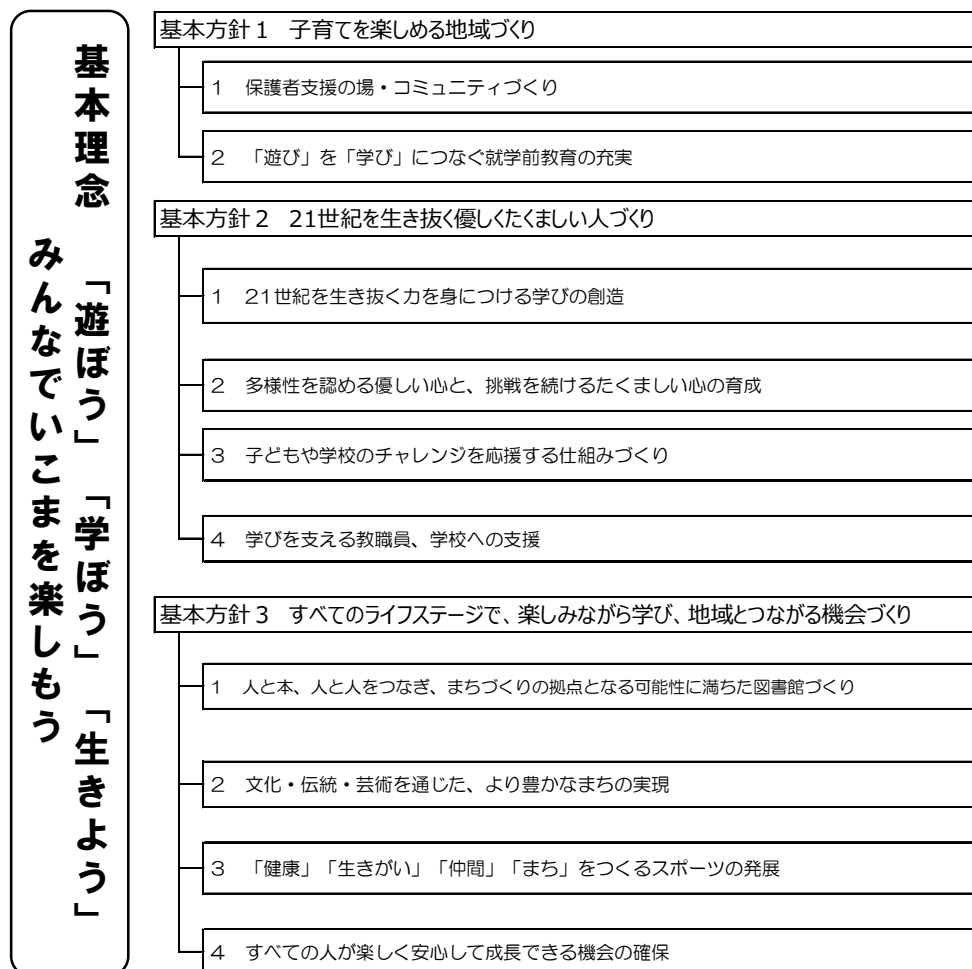 基本理念　「遊ぼう」　「学ぼう」　「生きよう」
みんなでいこまを楽しもう
基本方針１　子育てを楽しめる地域づくり
１　保護者支援の場・コミュニティづくり
２　「遊び」を「学び」につなぐ就学前教育の充実
基本方針２　21世紀を生き抜く優しくたくましい人づくり
１　21世紀を生き抜く力を身につける学びの創造
２　多様性を認める優しい心と、挑戦を続けるたくましい心の育成
３　子どもや学校のチャレンジを応援する仕組みづくり
４　学びを支える教職員、学校への支援
基本方針３　すべてのライフステージで、楽しみながら学び、地域とつながる機会づくり
１　人と本、人と人をつなぎ、まちづくりの拠点となる可能性に満ちた図書館づくり
２　文化・伝統・芸術を通じた、より豊かなまちの実現
３　「健康」「生きがい」「仲間」「まち」をつくるスポーツの発展
４　すべての人が楽しく安心して成長できる機会の確保